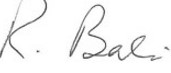 R. Bali